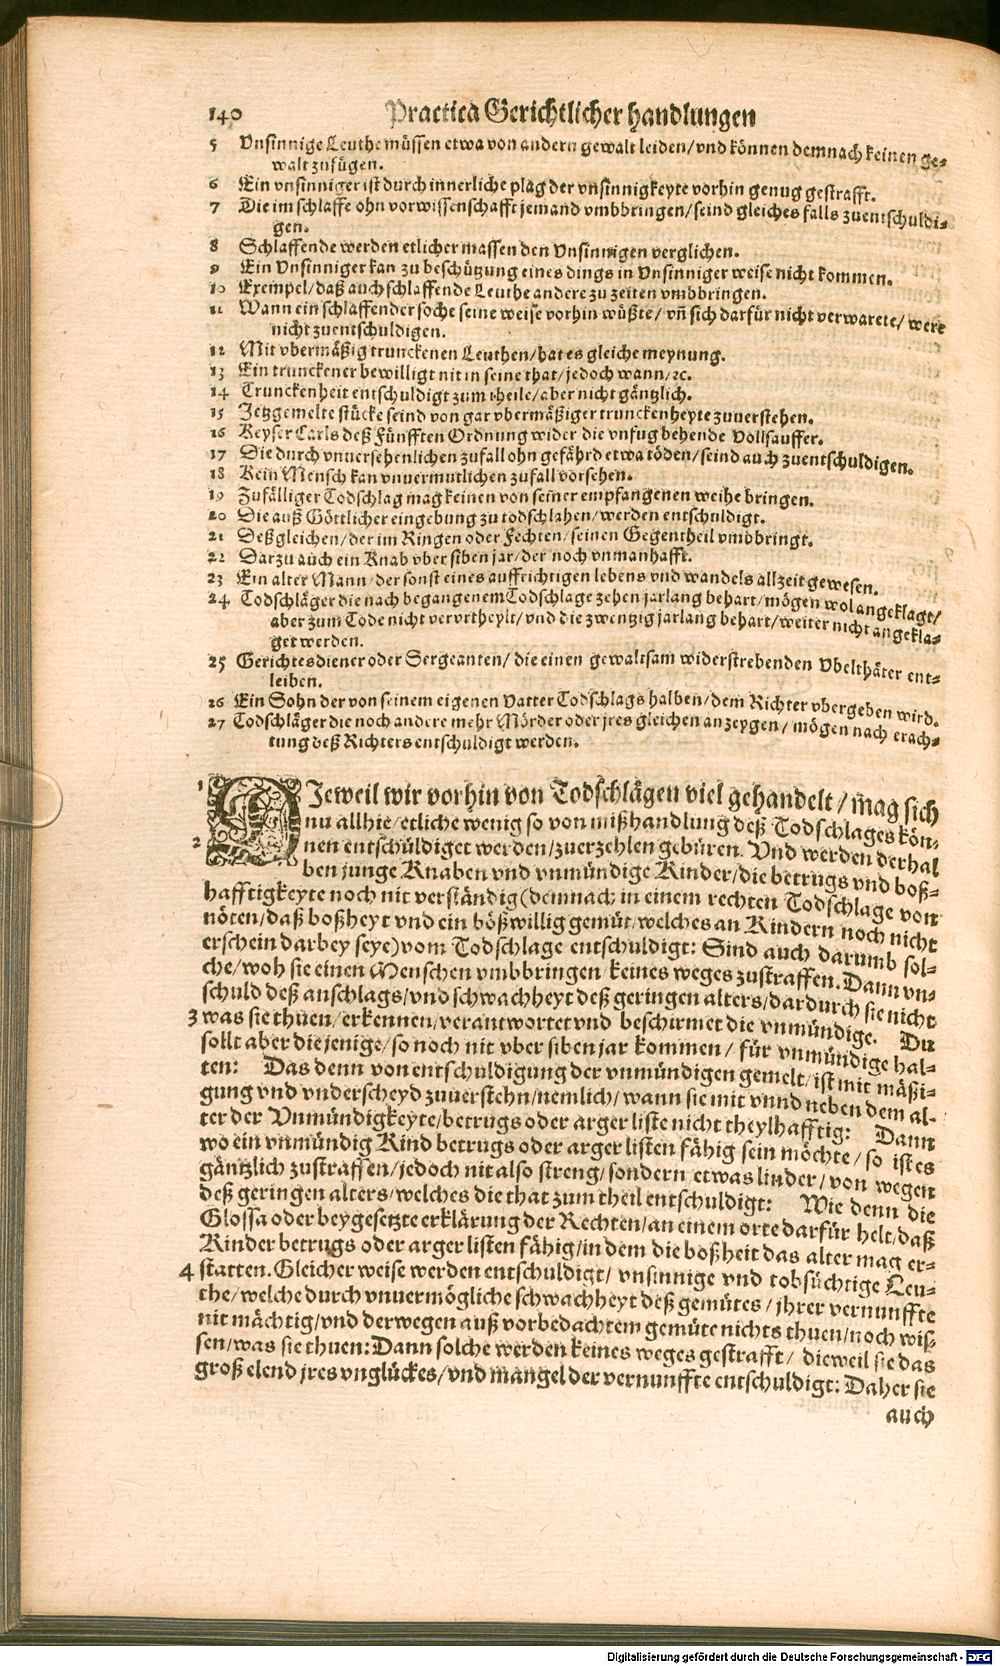 140 Practica Gerichtlicher handlungen
5 Vnsinnige Leuthe müssen etwa von andern gewalt leiden/vnd können demnach keinen ge⸗
walt zufügen.
6 Ein vnsinniger ist durch innerliche plag der vnsinnigkeyte vorhin genug gestrafft.
7 Die im schlaffe ohn vorwissenschafft jemand vmbbringen/seind gleiches falls zuentschuldi⸗
gen.
8 Schlaffende werden etlicher massen den Vnsinnigen verglichen.
9 Ein Vnsinniger kan zu beschützung eines dings in Vnsinniger weise nicht kommen.
10 Exempel/daß auch schlaffende Leuthe andere zu zeiten vmbbringen.
11 Wann ein schlaffender solche seine weise vorhin wüßte/ vñ sich darfür nicht verwarete/ were
nicht zuentschuldigen.
12 Mit vbermäßig trunckenen Leuthen/hat es gleiche meynung.
13 Ein trunckener bewilligt nit in seine that/jedoch wann/ꝛc.
14 Trunckenheit entschuldigt zum theile/aber nicht gäntzlich.
15 Jetzgemelte stücke seind von gar vbermäßiger trunckenheyte zuuerstehen.
16 Keyser Carls deß Fünfften Ordnung wider die vnfug behende Vollsauffer.
17 Die durch vnuersehenlichen zufall ohn gefährd etwa töden/seind auch zuentschuldigen.
18 Kein Mensch kan vnuermutlichen zufall vorsehen.
19 Zufälliger Todschlag mag keinen von seiner empfangenen weihe bringen.
20 Die auß Göttlicher eingebung zu todschlahen/werden entschuldigt.
21 Deßgleichen/der im Ringen oder Fechten/seinen Gegentheil vmbbringt.
22 Darzu auch ein Knab vber siben jar/der noch vnmanhafft.
23 Ein alter Mann/der sonst eines auffrichtigen lebens vnd wandels allzeit gewesen.
24 Todschläger die nach begangenem Todschlage zehen jarlang behart/mögen wol angeklagt/
aber zum Tode nicht vervrtheylt/vnd die zwentzig jarlang behart/weiter nicht angekla⸗
get werden.
25 Gerichtesdiener oder Sergeanten/ die einen gewaltsam widerstrebenden Vbelthäter ent⸗
leiben.
26 Ein Sohn der von seinem eigenen Vatter Todschlags halben/dem Richter vbergeben wird.
27 Todschläger die noch andere mehr Mörder oder jres gleichen anzeygen/ mögen nach erach⸗
tung deß Richters entschuldigt werden.
1 DJeweil wir vorhin von Todschlägen viel gehandelt/mag sich
nu allhie/etliche wenig so von mißhandlung deß Todschlages kön⸗
2 nen entschüldiget werden/zuerzehlen gebüren. Vnd werden derhal
ben junge Knaben vnd vnmündige Kinder/die betrugs vnd boß⸗
hafftigkeyte noch nit verständig (demnach in einem rechten Todschlage von
nöten/daß boßheyt vnd ein bößwillig gemüt/welches an Kindern noch nicht
erschein darbey seye) vom Todschlage entschuldigt: Sind auch darumb sol⸗
che/woh sie einen Menschen vmbbringen/keines weges zustraffen. Dann vn⸗
schuld deß anschlags/vnd schwachheyt deß geringen alters/dardurch sie nicht
3 was sie thuen/erkennen/verantwortet vnd beschirmet die vnmündige. Du
sollt aber die jenige/so noch nit vber siben jar kommen/ für vnmündige hal⸗
ten: Das denn von entschuldigung der vnmündigen gemelt/ist mit mäßi⸗
gung vnd vnderscheyd zuuerstehn/nemlich/wann sie mit vnnd neben dem al⸗
ter der Vnmündigkeyte/betrugs oder arger liste nicht theylhafftig: Dann
wo ein vnmündig Kind betrugs oder arger listen fähig sein möchte/ so ist es
gäntzlich zustraffen/jedoch nit also streng/sondern etwas linder/von wegen
deß geringen alters/welches die that zum theil entschuldigt: Wie denn die
Glossa oder beygesetzte erklärung der Rechten/an einem orte darfür helt/daß
Kinder betrugs oder arger listen fähig/in dem die boßheit das alter mag er⸗
4 statten. Gleicher weise werden entschuldigt/ vnsinnige vnd tobsüchtige Leu⸗
the/welche durch vnuermögliche schwachheyt deß gemütes/jhrer vernunffte
nit mächtig/vnd derwegen auß vorbedachtem gemüte nichts thuen/noch wis⸗
sen/was sie thuen: Dann solche werden keines weges gestrafft/ dieweil sie das
groß elend jres vnglückes/vnd mangel der vernunffte entschuldigt: Daher sie
auch
Digitalisierung gefördert durch die Deutsche Forschungsgemeinschaft - DFG